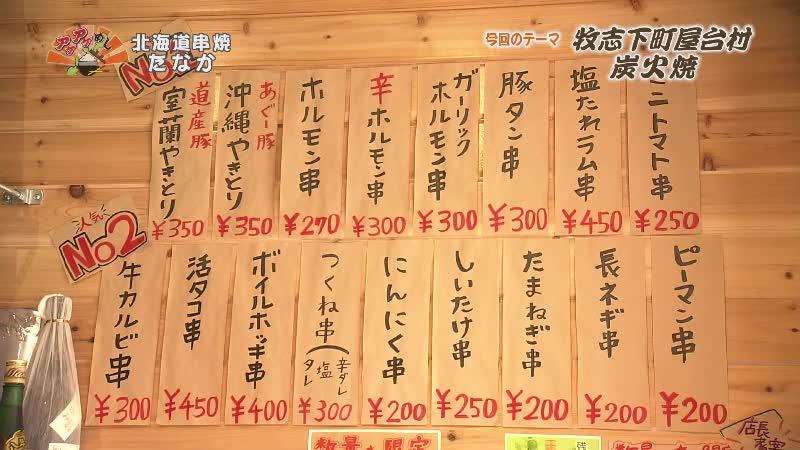 アゲアゲめし
北海道串焼
たなか
今回のテーマ
牧志下町屋台村
炭火焼
道産豚
室蘭やきとり
¥350
あぐー豚
沖縄やきとり
¥350
ホルモン串
¥270
辛ホルモン串
¥300
ガーリック
ホルモン串
¥300
豚タン串
¥300
塩たれラム串
¥450
ミニトマト串
¥250
人気
No2
牛カルビ串
¥300
活タコ串
¥450
ボイルホッキ串
¥400
つくね串(辛ダレ
塩
タレ
¥300
にんにく串
¥200
しいたけ串
¥250
たまねぎ串
¥200
長ネギ串
¥200
ピーマン串
¥200
数量 限定
店長